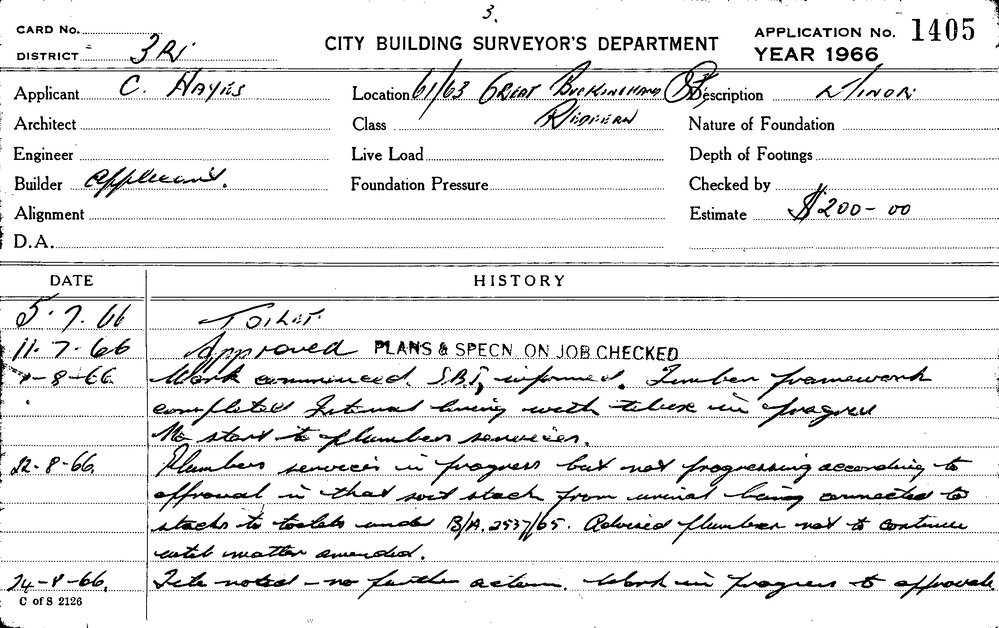 3.
CARD No.
DISTRICT 3Ri
CITY BUILDING SURVEYOR'S DEPARTMENT
APPLICATION No. 1405
YEAR 1966
Applicant C. HAYES
Location 61/63 GREAT BUCKINGHAM ST,
Description MINOR
Architect
Class REDFERN
Nature of Foundation
Engineer
Live Load
Depth of Footings
Builder applicant.
Foundation Pressure
Checked by
Alignment
Estimate $200-00
D.A.
DATE HISTORY
5.7.66 TOILET.
11.7.66 Approved PLANS & SPECN. ON JOB CHECKED
-8-66 Work commenced. S.B.I, informed. Timber framework
completed Internal lining with tilux in progress
No start to plumbers services.
22-8-66 Plumbers services in progress but not progressing according to
approval in that soil stack from urinal being connected to
stacks to toilets under B/A. 2537/65. Advised plumber not to continue
until matter amended.
24-8-66. Site noted - no further action. Work in progress to approval.
C of S 2126